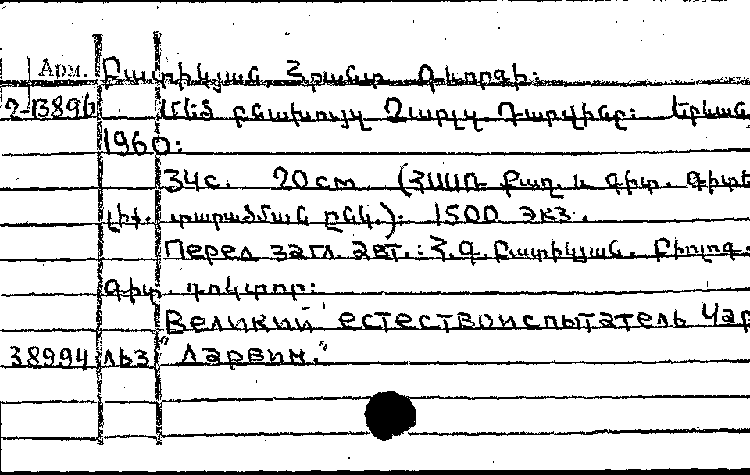 Арм. Բատիկյան Հրանտ Գևորգի:
2-13896 Մեծ բնախույզ Չարլզ Դարվինը: Երևան
1960:
34с. 20см (ՀՍՍՌ Քաղ. և գիտ. Գիտե
լիք. տարածման ընկ.): 1500 экз.
Перед загл. авт.: Հ.Գ. Բատիկյան. Բիոլոգ.
գիտ. դոկտոր:
"Великий естествоиспытатель Чар
38994 льз Дарвин."